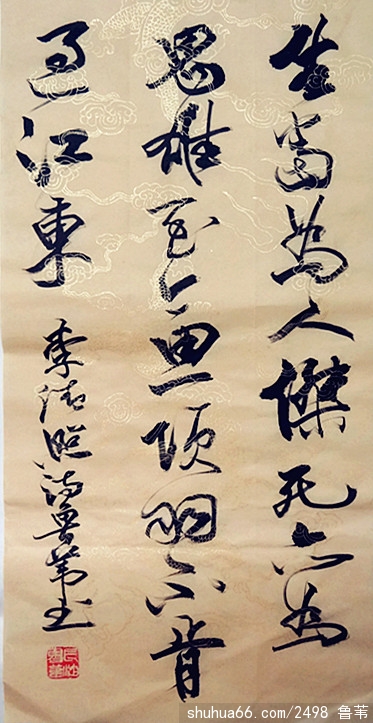 生當為人傑死亦為
鬼雄至今思項羽不肯
過江東
李清照詩魯葦书
shuhua66.com/2498 鲁苇